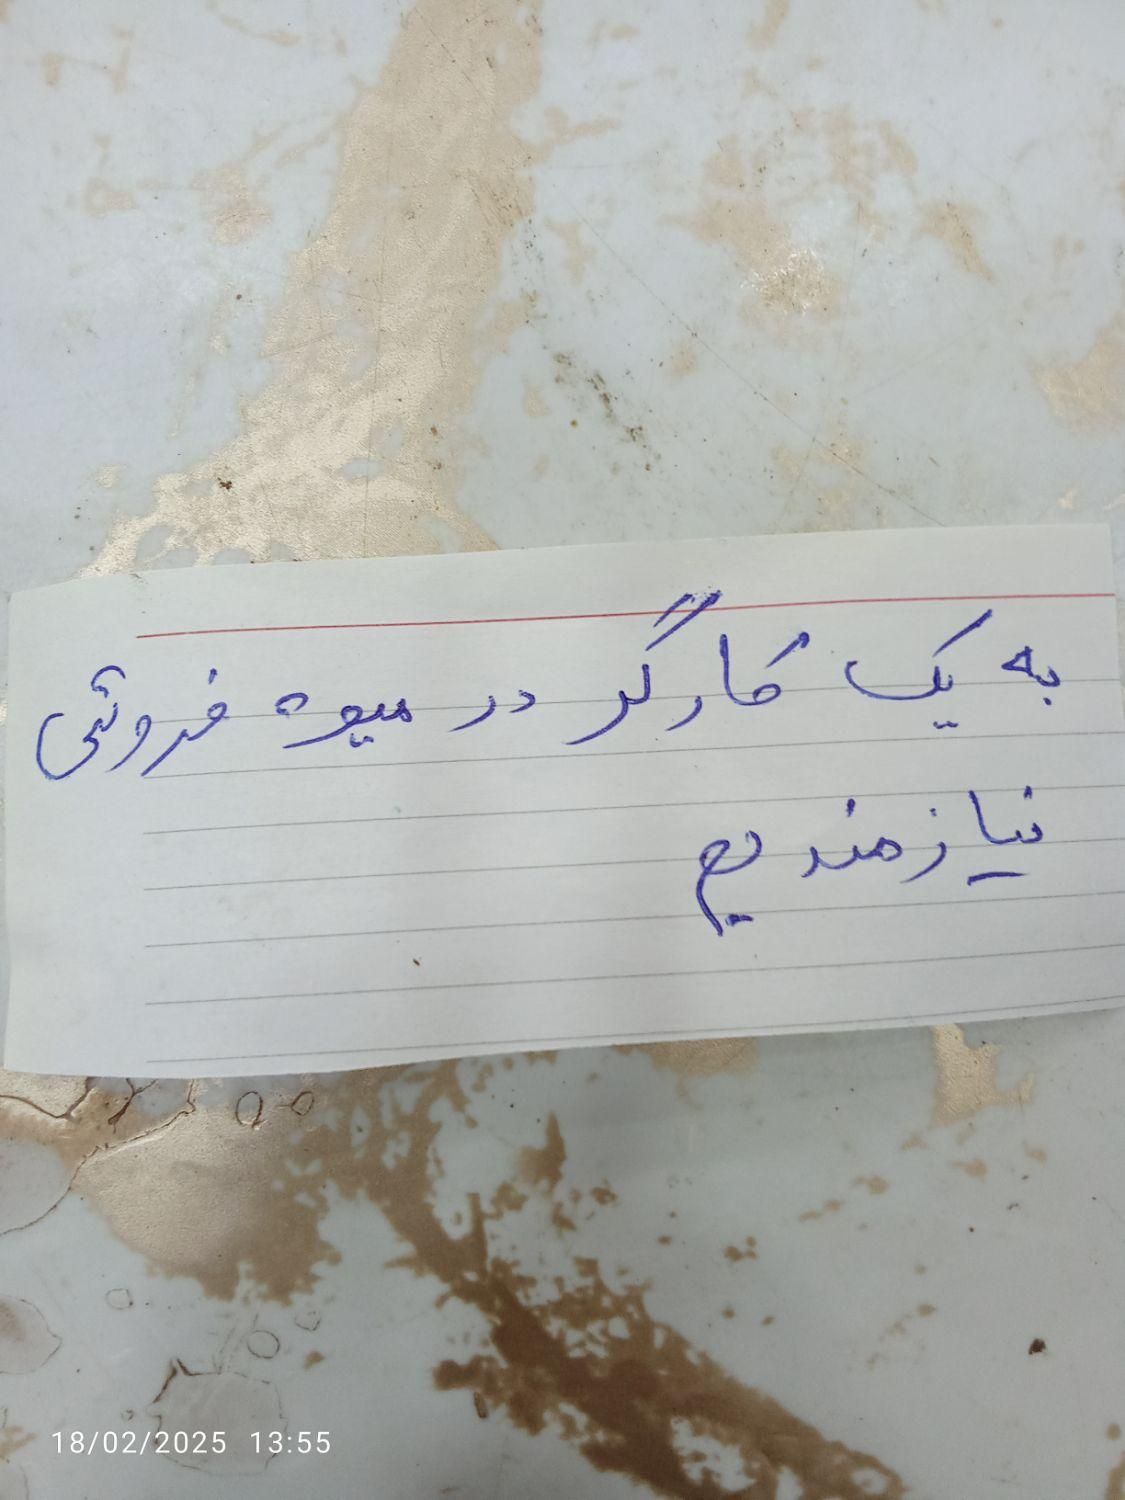 به یک کارگر در میوه فروشی
نیازمندیم
18/02/2025 13:55